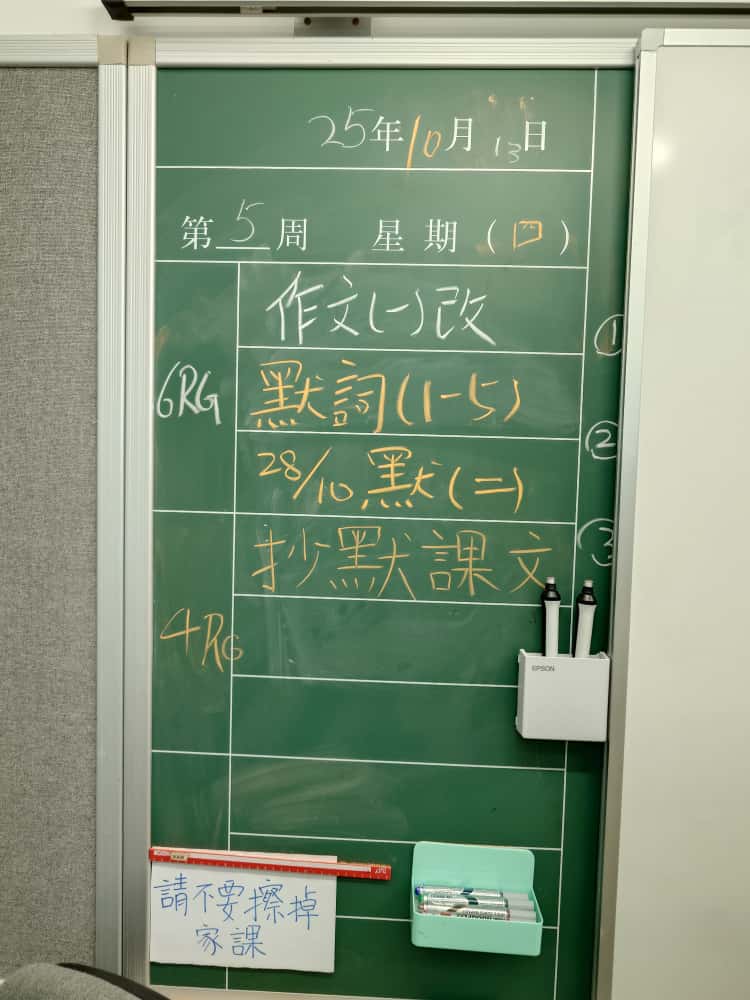 25年10月13日
第5周 星期(四)
作文(一)改
6RG
默詞(1-5)
28/10 默(二)
抄默課文
4RG
①
②
③
EPSON
請不要擦掉
家課